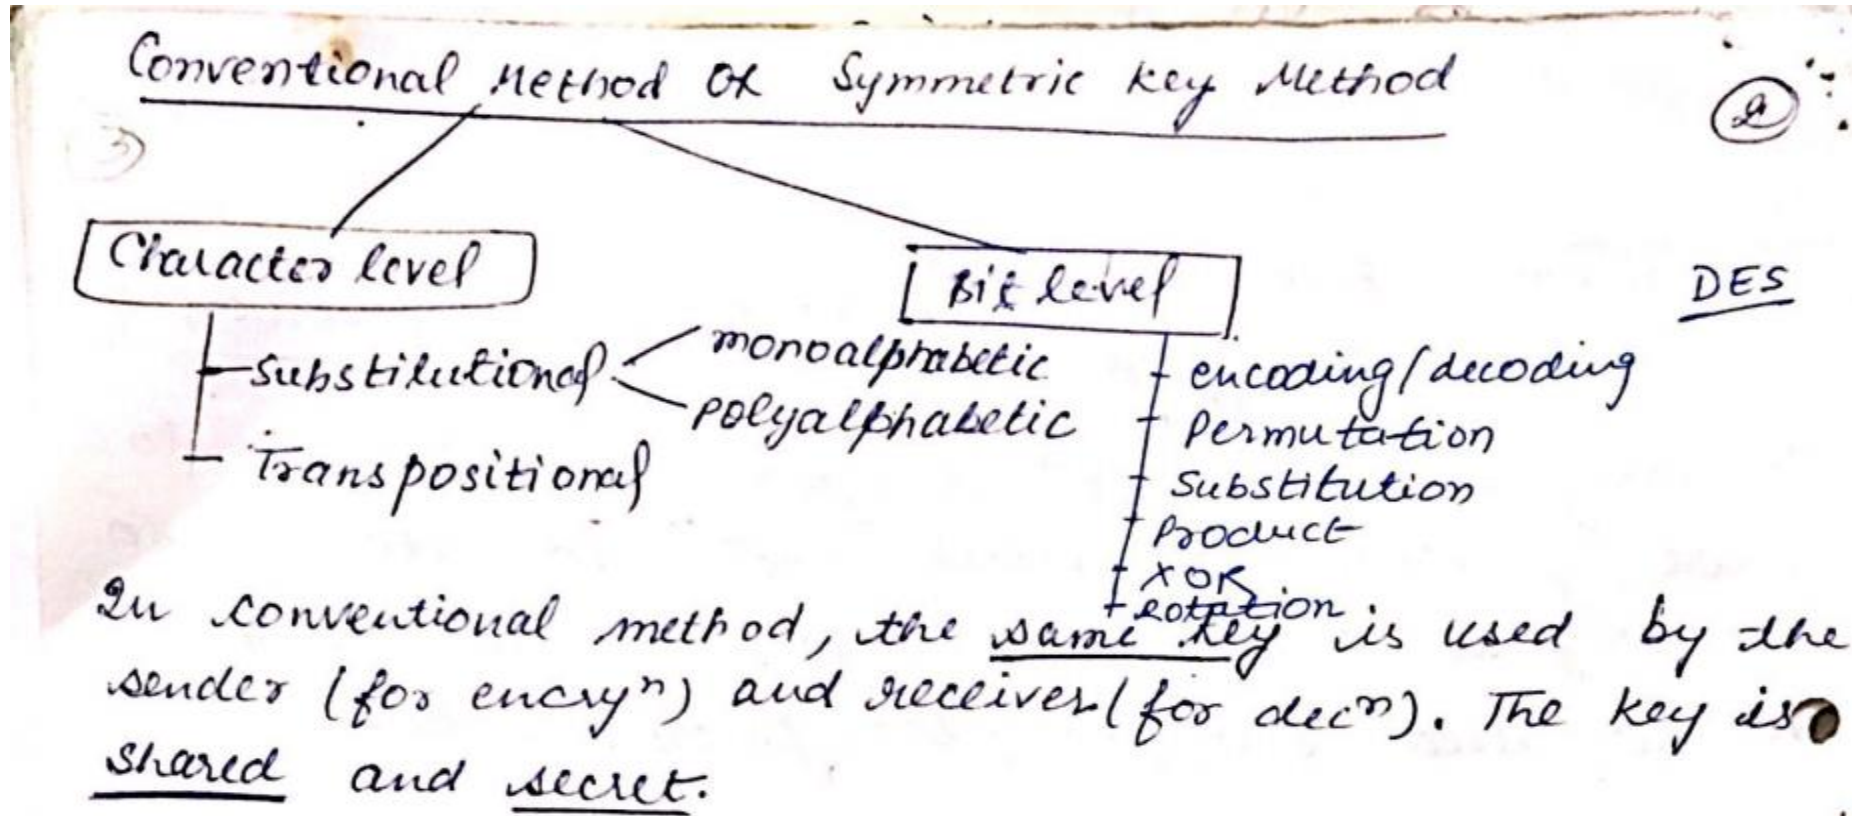 Conventional Method OR Symmetric Key Method
2
Character level
Bit level
DES
Substitutional
monoalphabetic
polyalphabetic
Transpositional
encoding/decoding
Permutation
Substitution
Product
XOR
rotation
In conventional method, the same key is used by the
sender (for encryⁿ) and receiver (for decⁿ). The key is
shared and secret.